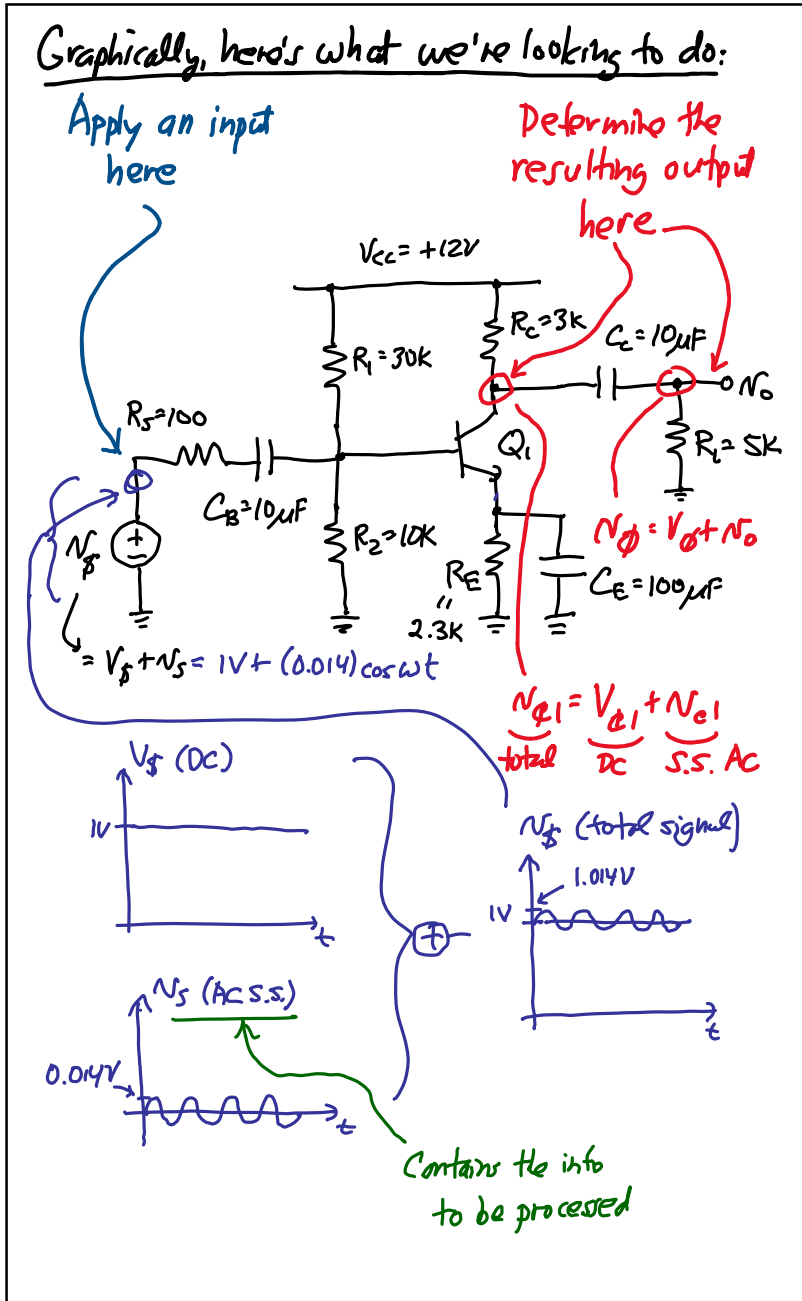 Graphically, here's what we're looking to do:
Apply an input
here
Determine the
resulting output
here
Vcc = +12V
R1 = 30K
Rc = 3K
Cc = 10μF
vo
Rs = 100
CB = 10μF
Q1
RL = 5K
R2 = 10K
RE
"
2.3K
CE = 100μF
v$
+
−
vØ = VØ + vo
= V$ + vs = 1V + (0.014) cos ωt
v¢1 = V¢1 + vc1
total DC S.S. AC
V$ (DC)
1V
t
v$ (total signal)
1.014V
1V
t
+
vs (AC S.S.)
0.014V
t
Contains the info
to be processed